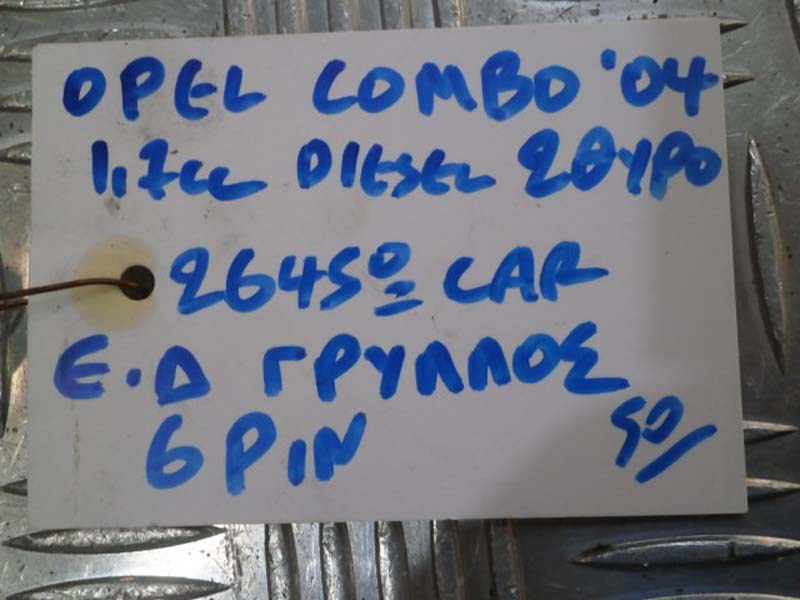 OPEL COMBO '04
1,7cc DIESEL 2ΘΥΡΟ
2645º CAR
Ε.Δ ΓΡΥΛΛΟΣ
6 PIN
50/